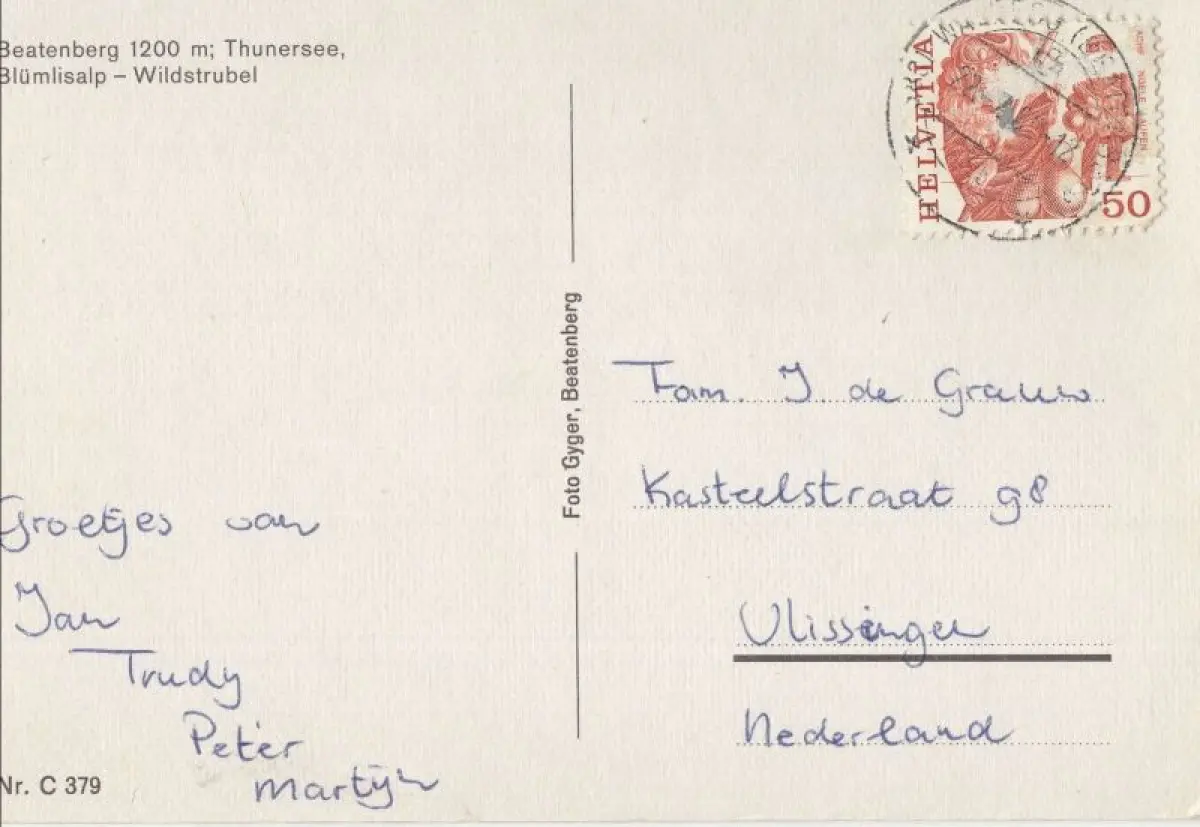 Beatenberg 1200 m; Thunersee,
Blümlisalp – Wildstrubel
HELVETIA
50
Foto Gyger, Beatenberg
Fam. J. de Grauw
Kasteelstraat 98
Vlissingen
Nederland
Groetjes van
Jan
Trudy
Peter
Martijn
Nr. C 379